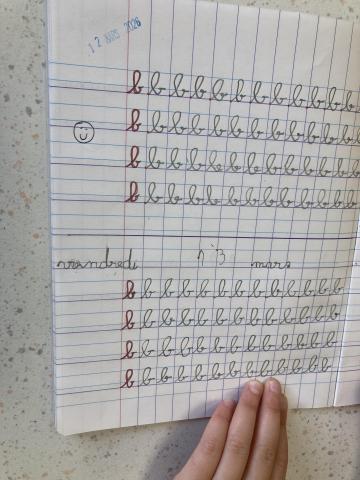 12 MARS 2026
b b b b b b b b b b b b
b b b b b b b b b b b b b
b b b b b b b b b b b b b
b b b b b b b b b b b b b
13 mars
b b b b b b b b b b b b b
b b b b b b b b b b b b b
b b b b b b b b b b b b b
b b b b b b b b b b b b b